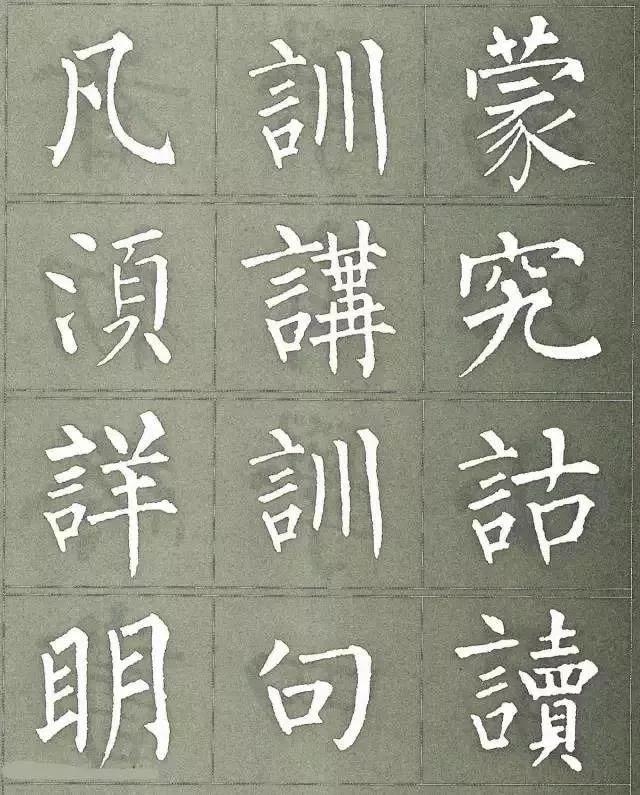 凡訓蒙
湏講究
詳訓詁
眀句讀